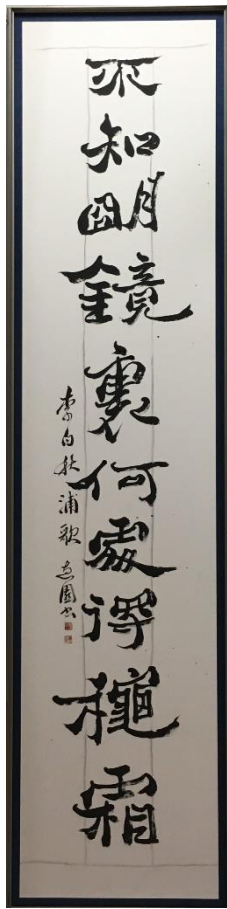 不知朙鏡裏何處得穐霜
李白秋浦歌